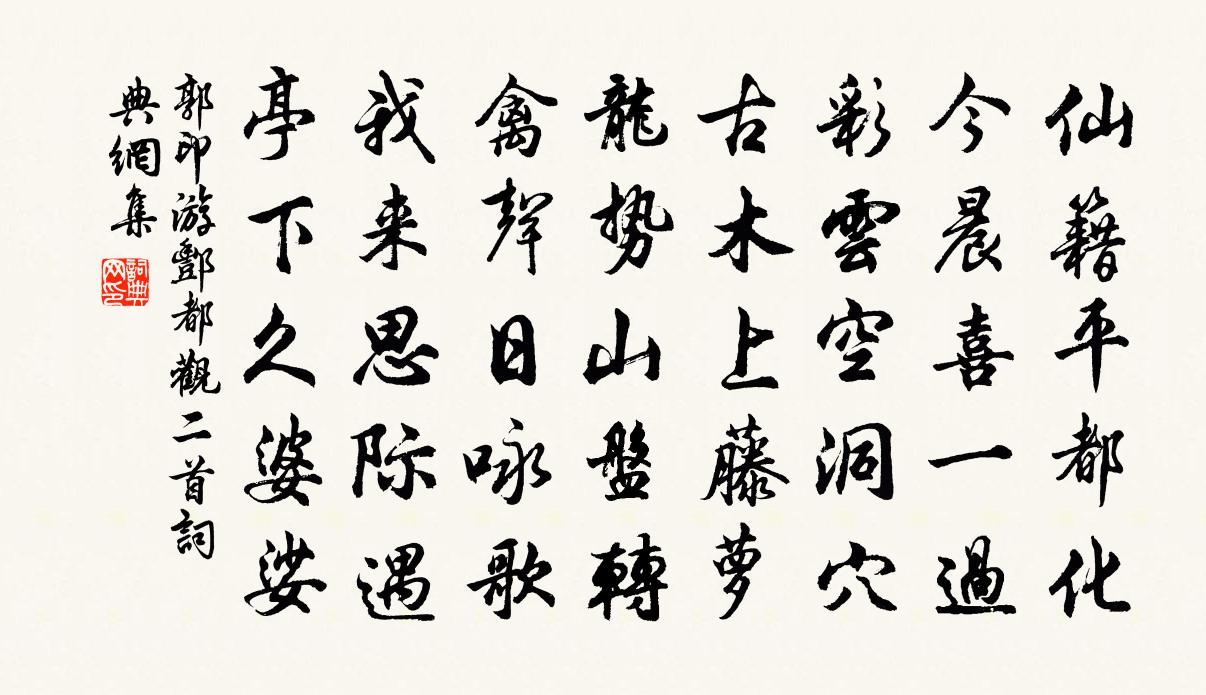 仙籍平都化
今晨喜一過
彩雲空洞穴
古木上藤萝
龍勢山盤轉
禽聲日咏歌
我来思际遇
亭下久婆娑
郭印游酆都觀二首詞
典網集
詞典网印